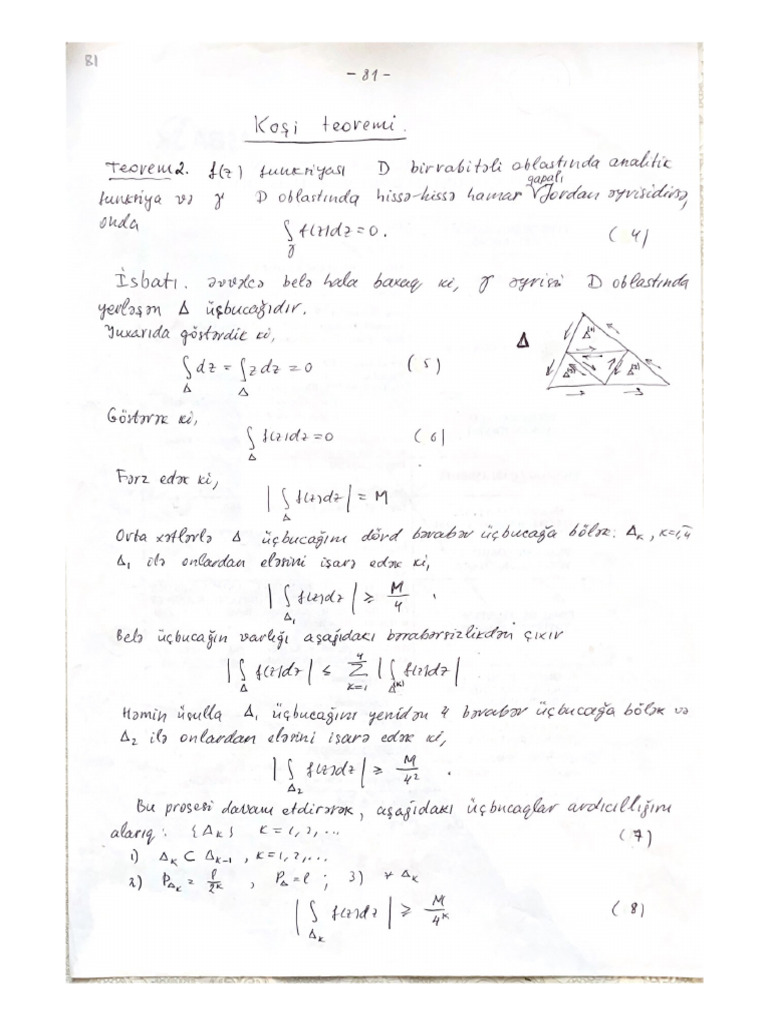 81
- 81 -
Koşi teoremi.
Teorem 2. f(z) funksiyası D birrabitəli oblastında analitik
qapalı
funksiya və γ D oblastında hissə-hissə hamar Jordan əyrisidirsə,
onda ∫γ f(z)dz = 0. (4)
İsbatı. Əvvəlcə belə hala baxaq ki, γ əyrisi D oblastında
yerləşən Δ üçbucağıdır.
Yuxarıda göstərdik ki,
∫Δ dz = ∫Δ z dz = 0 (5)
Δ Δ⁽¹⁾ Δ⁽³⁾ Δ⁽²⁾
Göstərək ki,
∫Δ f(z)dz = 0 (6)
Fərz edək ki,
|∫Δ f(z)dz| = M
Orta xətlərlə Δ üçbucağını dörd bərabər üçbucağa bölək: Δk, k=1,4
Δ1 ilə onlardan eləsini işarə edək ki,
|∫Δ1 f(z)dz| ≥ M/4 .
Belə üçbucağın varlığı aşağıdakı bərabərsizlikdən çıxır
|∫Δ f(z)dz| ≤ Σ k=1 4 |∫Δ⁽ᵏ⁾ f(z)dz|
Həmin üsulla Δ1 üçbucağını yenidən 4 bərabər üçbucağa bölək və
Δ2 ilə onlardan eləsini işarə edək ki,
|∫Δ2 f(z)dz| ≥ M/4² .
Bu prosesi davam etdirərək, aşağıdakı üçbucaqlar ardıcıllığını
alarıq: {Δk} k=1,2,... (7)
1) Δk ⊂ Δk-1, k=1,2,...
2) PΔk = l/2ᵏ , PΔ = l ; 3) ∀ Δk
|∫Δk f(z)dz| ≥ M/4ᵏ (8)